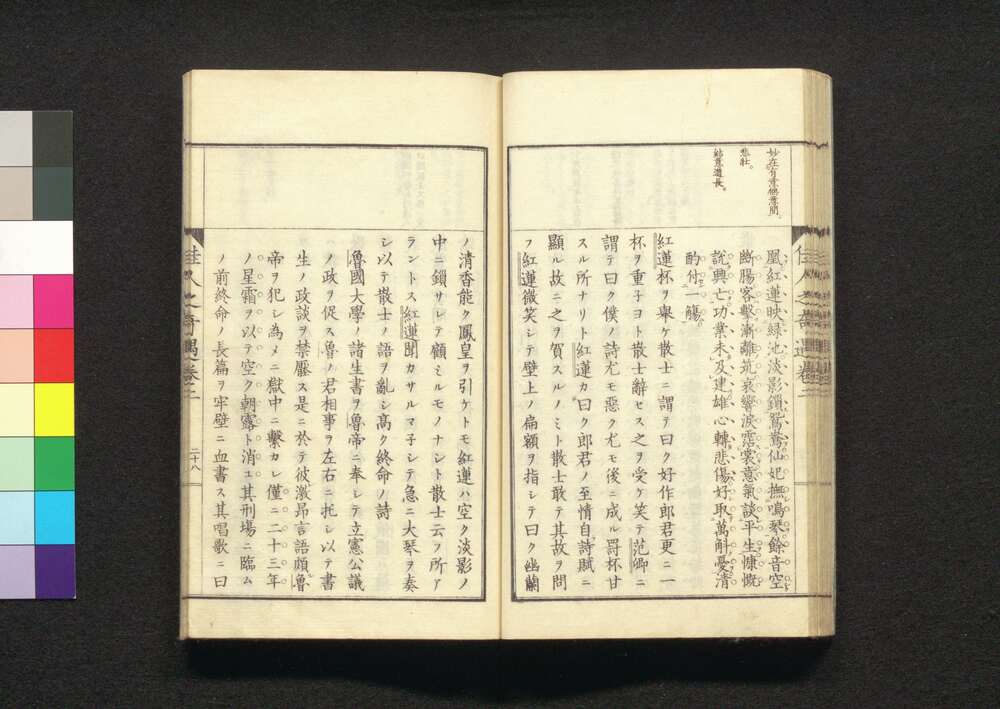 妙在有意無意間。
悲壯。
結意遒長。
凰紅蓮映綠池淡影鎖鴛鴦仙妃撫鳴琴餘音空
斷腸客擊漸離筑哀響淚霑裳意氣談平生慷慨
說興亡功業未及建雄心轉悲傷好取萬斛憂淸
酌付一觴
紅蓮杯ヲ擧ケ散士ニ謂テ曰ク好作郎君更ニ一
杯ヲ重子ヨト散士辭セス之ヲ受ケ笑テ范卿ニ
謂テ曰ク僕ノ詩尤モ惡ク尤モ後ニ成ル罰杯甘
スル所ナリト紅蓮カ曰ク郎君ノ至情自詩賦ニ
顯ル故ニ之ヲ賀スルノミト散士敢テ其故ヲ問
フ紅蓮微笑シテ壁上ノ扁額ヲ指シテ曰ク幽蘭
ノ淸香能ク鳳皇ヲ引ケトモ紅蓮ハ空ク淡影ノ
中ニ鎖サレテ顧ミルモノナシト散士云フ所ア
ラントス紅蓮聞カサルマ子シテ急ニ大琴ヲ奏
シ以テ散士ノ語ヲ亂シ高ク終命ノ詩
魯國大學ノ諸生書ヲ魯帝ニ奉シテ立憲公議
ノ政ヲ促ス魯ノ君相事ヲ左右ニ托シ以テ書
生ノ政談ヲ禁壓ス是ニ於テ彼激昂言語頗魯
帝ヲ犯シ為メニ獄中ニ繫カレ僅ニ二十三年
ノ星霜ヲ以テ空ク朝露ト消エ其刑場ニ臨ム
ノ前終命ノ長篇ヲ牢壁ニ血書ス其唱歌ニ曰
佳人之奇遇卷二
二十八